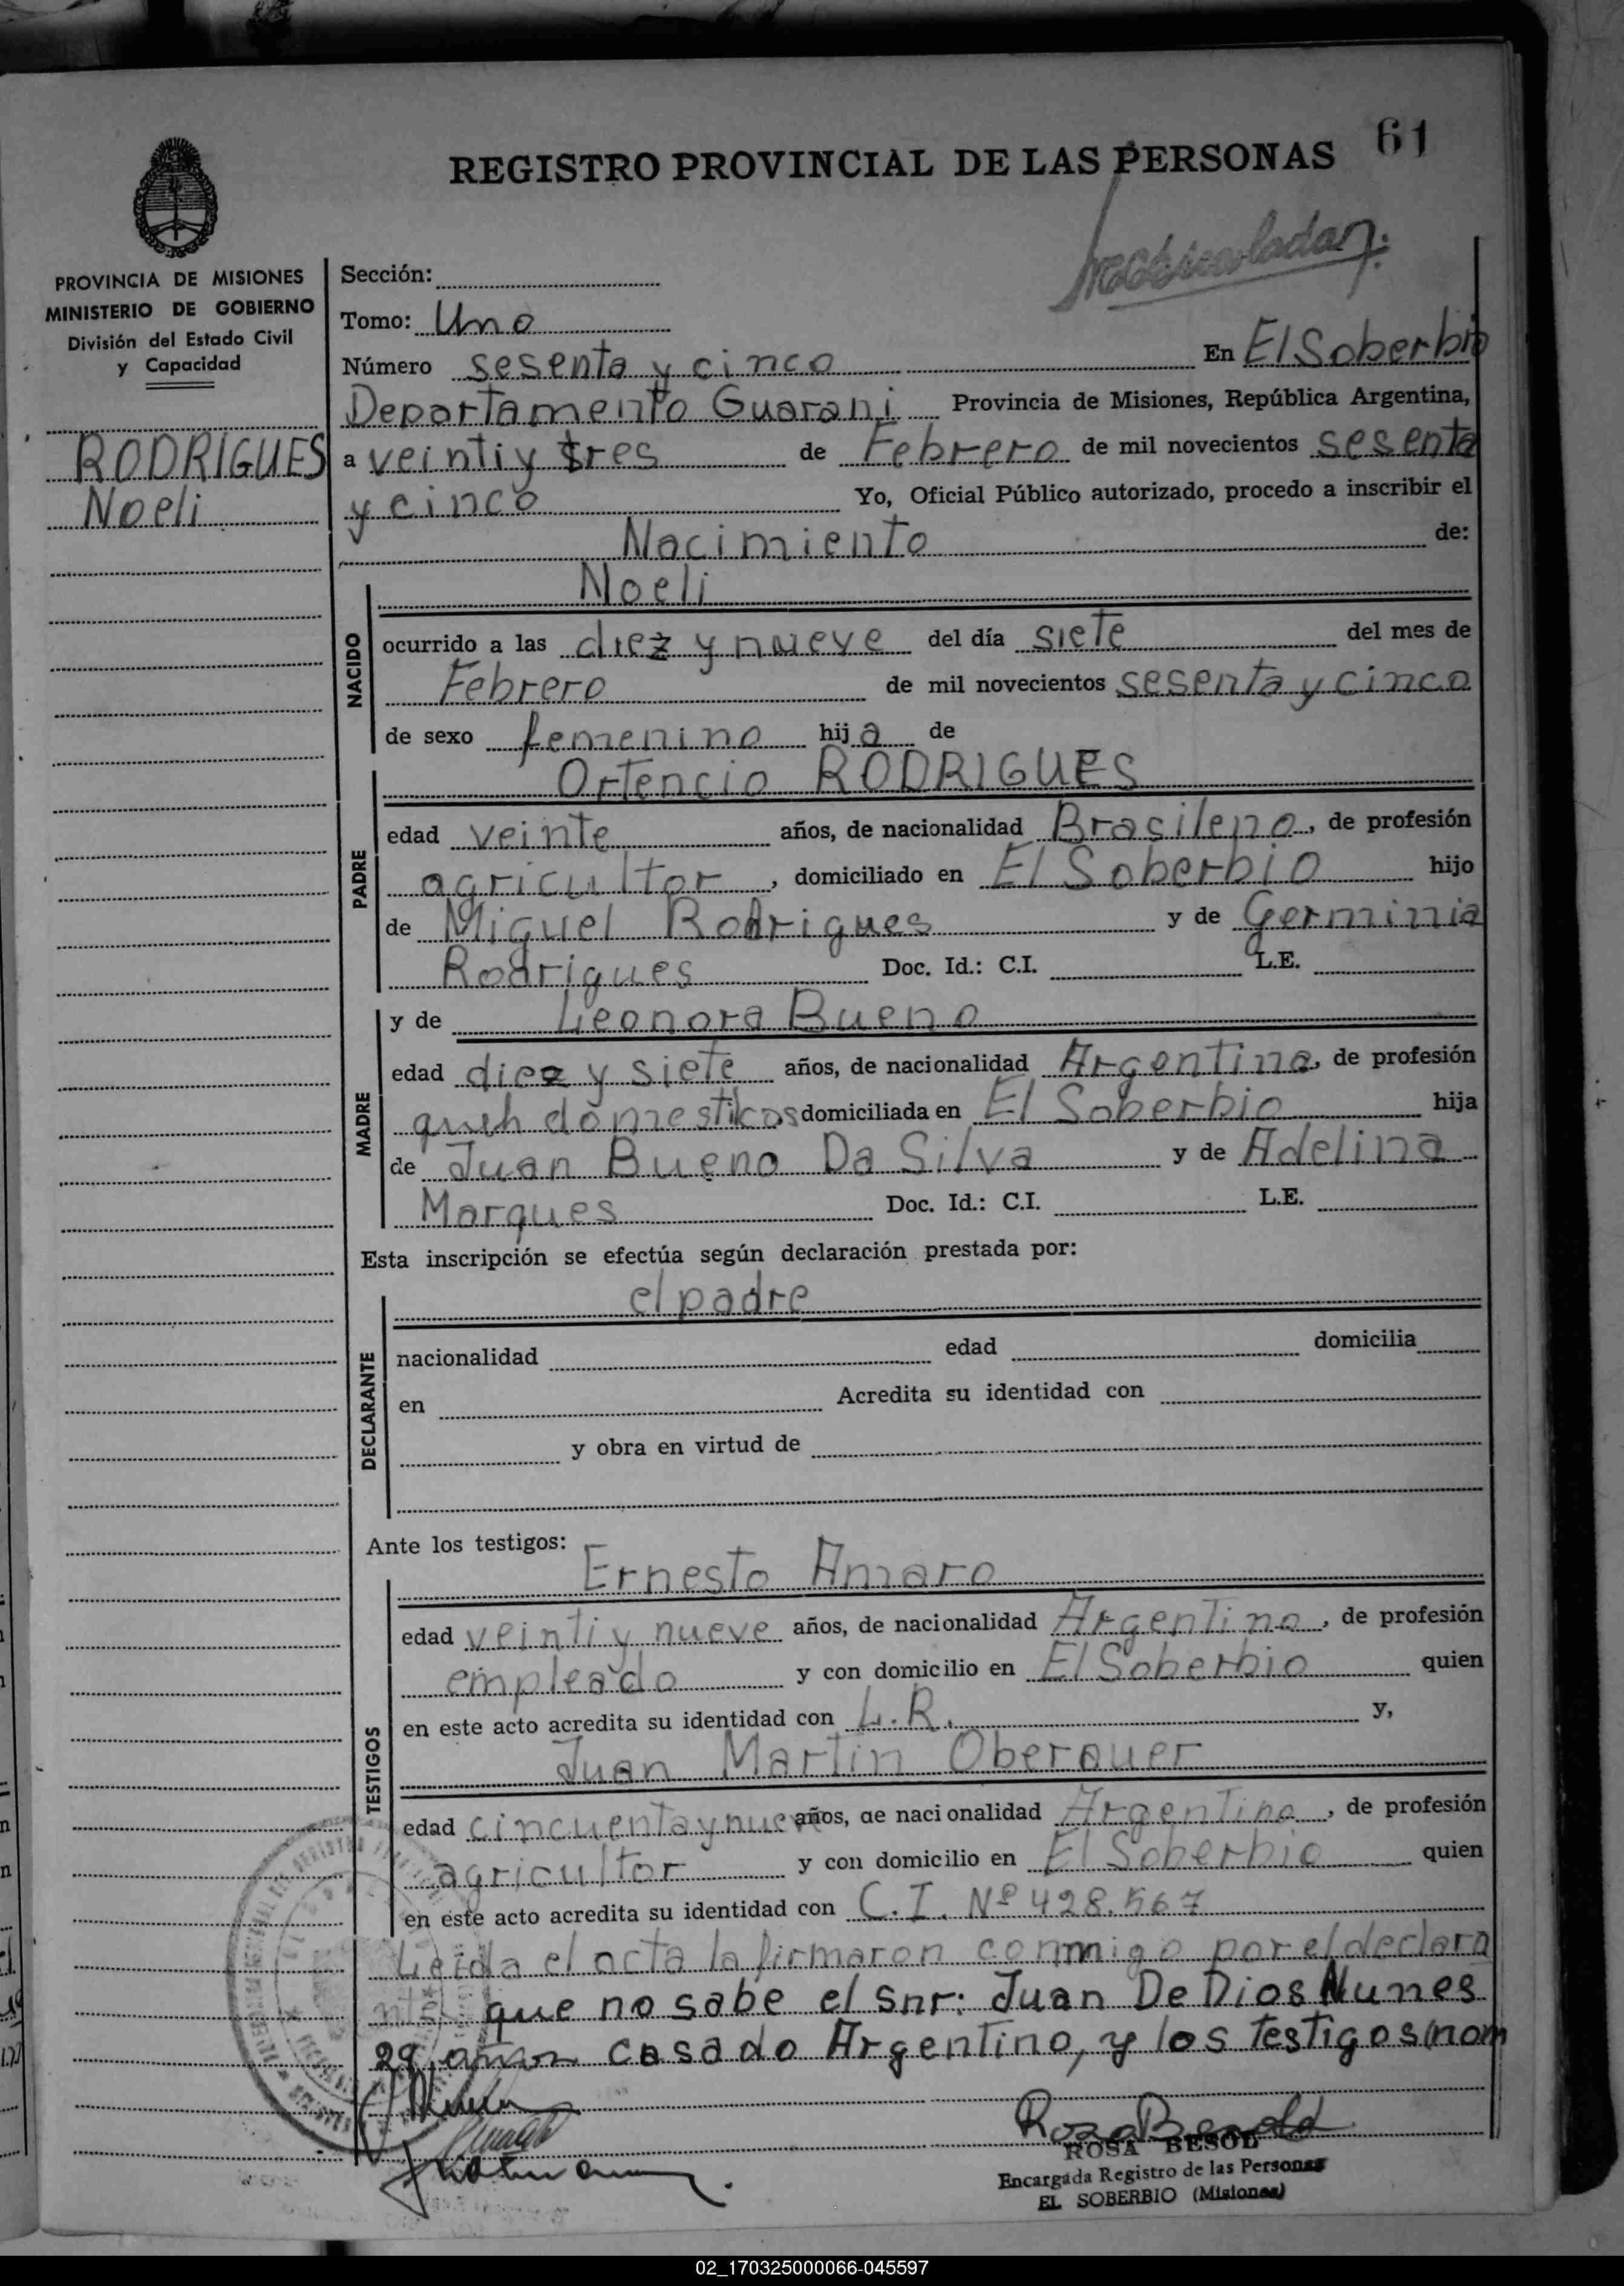 61
REGISTRO PROVINCIAL DE LAS PERSONAS
PROVINCIA DE MISIONES
MINISTERIO DE GOBIERNO
División del Estado Civil
y Capacidad
RODRIGUES
Noeli
Sección:
Tomo: Uno
Número sesenta y cinco En El Soberbio
Departamento Guarani Provincia de Misiones, República Argentina,
a veinti y tres de Febrero de mil novecientos sesenta
y cinco Yo, Oficial Público autorizado, procedo a inscribir el
Nacimiento de:
Noeli
NACIDO
ocurrido a las diez y nueve del día siete del mes de
Febrero de mil novecientos sesenta y cinco
de sexo femenino hija de
Ortencio RODRIGUES
PADRE
edad veinte años, de nacionalidad Brasileno, de profesión
agricultor, domiciliado en El Soberbio hijo
de Miguel Rodrigues y de Germinia
Rodrigues Doc. Id.: C.I. L.E.
y de Leonora Bueno
MADRE
edad diez y siete años, de nacionalidad Argentina, de profesión
domestikos domiciliada en El Soberbio hija
de Juan Bueno Da Silva y de Adelina
Marques Doc. Id.: C.I. L.E.
Esta inscripción se efectúa según declaración prestada por:
el padre
DECLARANTE
nacionalidad edad domicilia
en Acredita su identidad con
y obra en virtud de
Ante los testigos:
Ernesto Amaro
TESTIGOS
edad veinti y nueve años, de nacionalidad Argentino, de profesión
empleado y con domicilio en El Soberbio quien
en este acto acredita su identidad con L.R. y,
Juan Martin Oberauer
edad cincuenta y nueve años, de nacionalidad Argentino, de profesión
agricultor y con domicilio en El Soberbio quien
en este acto acredita su identidad con C.I. Nº 428.567
Leida el acta la firmaron conmigo por el declara
nte que no sabe el snr: Juan De Dios Nunes
29 años casado Argentino, y los testigos (nom
ROSA BESOL
Encargada Registro de las Personas
EL SOBERBIO (Misiones)
02_170325000066-045597